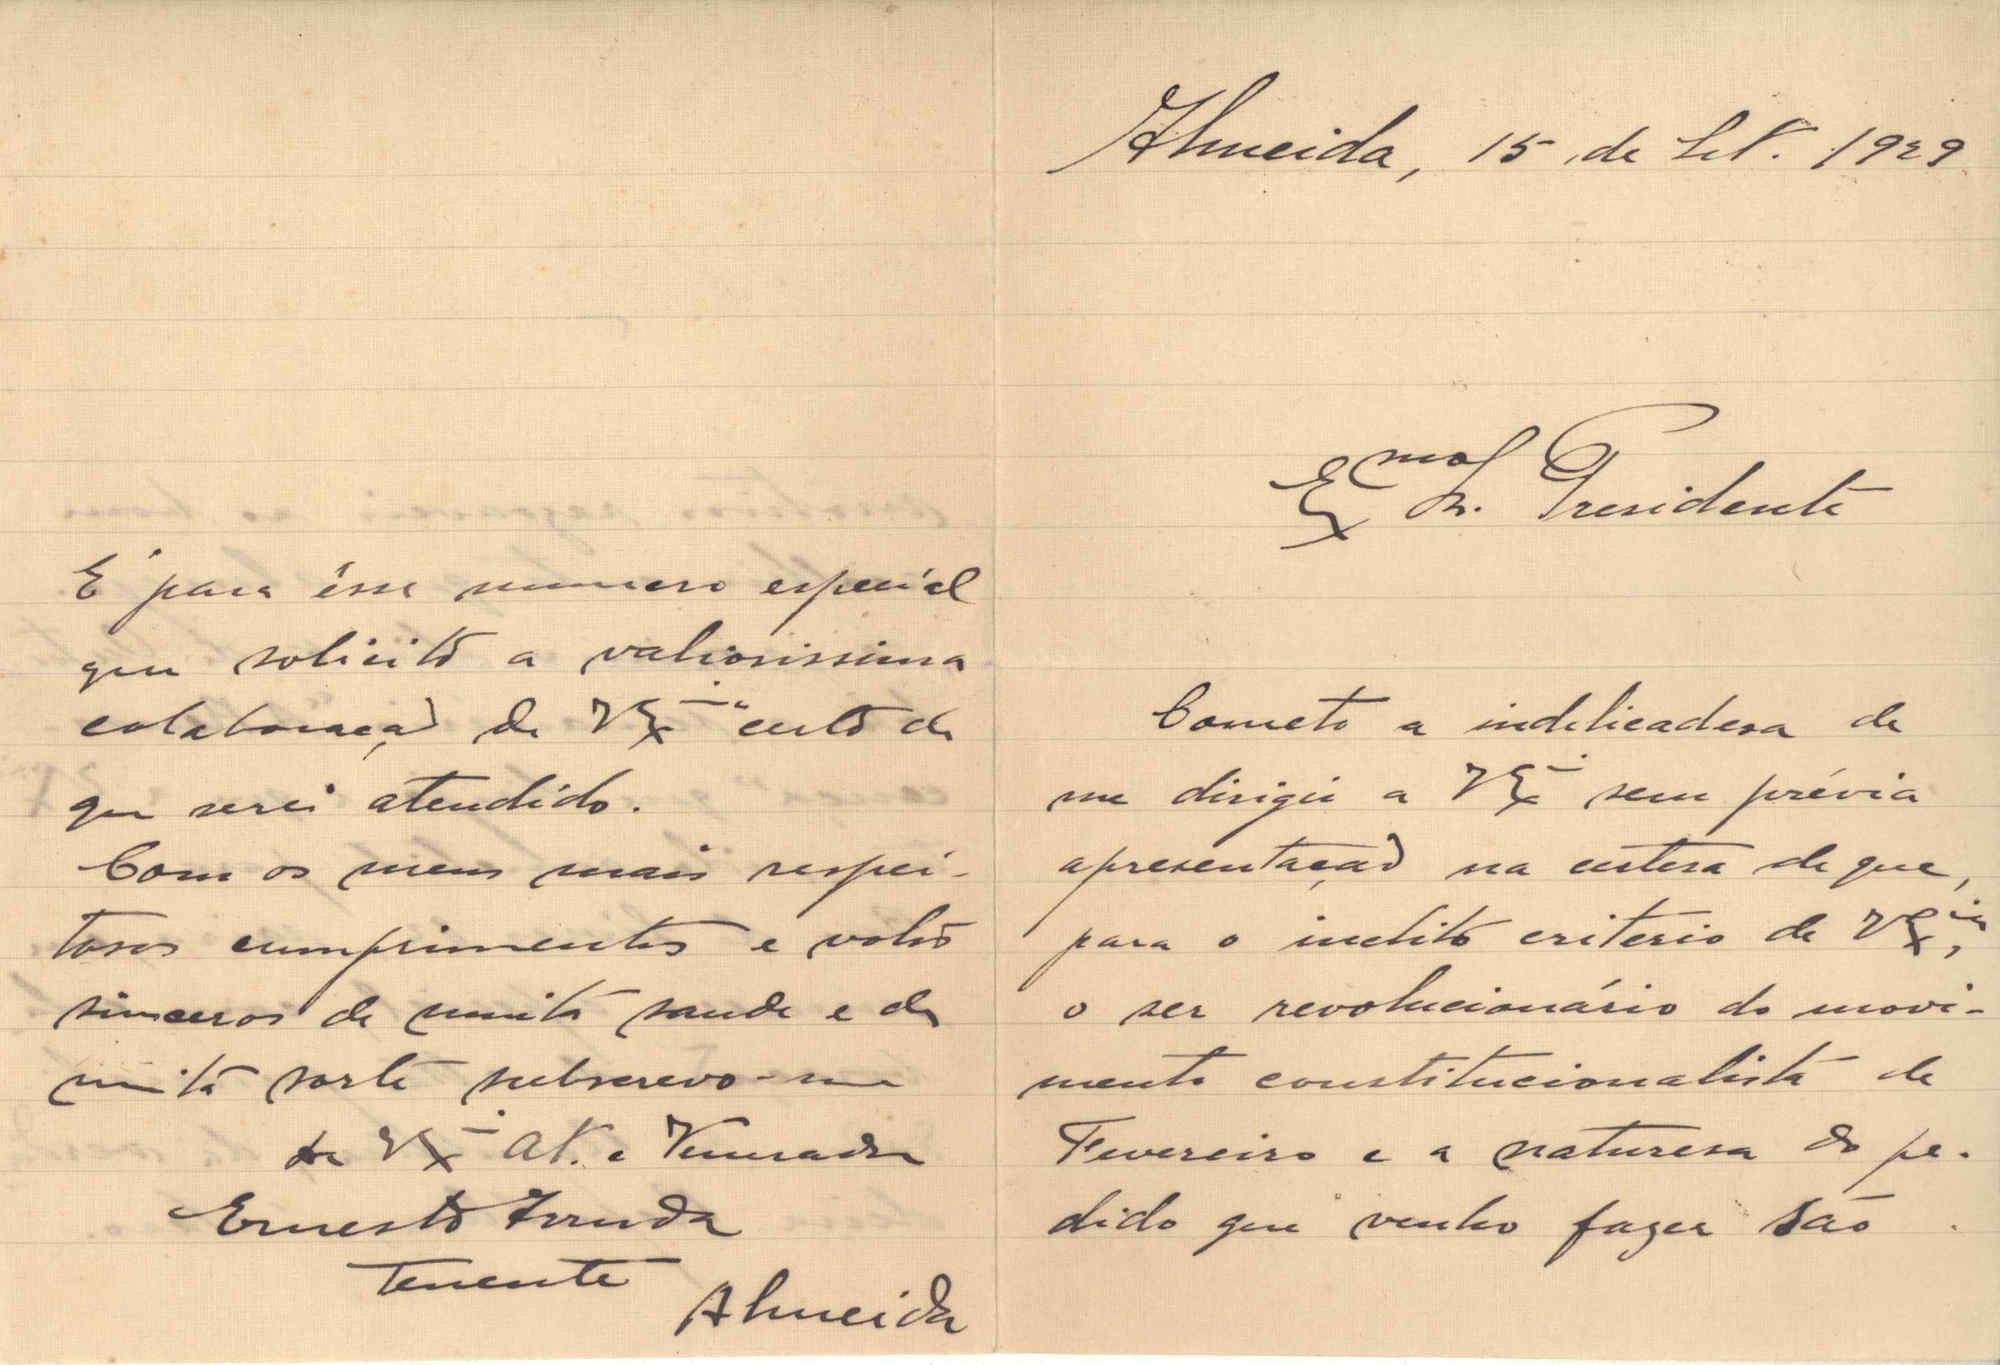 Almeida, 15 de Set. 1929
Exmo Sr. Presidente
Cometo a indelicadesa de
me dirigir a V Exi. sem prévia
apresentação na certesa de que,
para o inclito criterio de V Exia,
o ser revolucionário do movi-
mento constitucionalista de
Fevereiro e a naturesa do pe-
dido que venho fazer são
É para ésse numero especial
que solicito a valiosissima
colaboração de V Exia certo de
que serei atendido.
Com os meus mais respei-
tosos cumprimentos e votos
sinceros de muita saude e de
muita sorte subscrevo-me
de V Exi. At. e Venerador
Ernesto Arruda
Tenente
Almeida